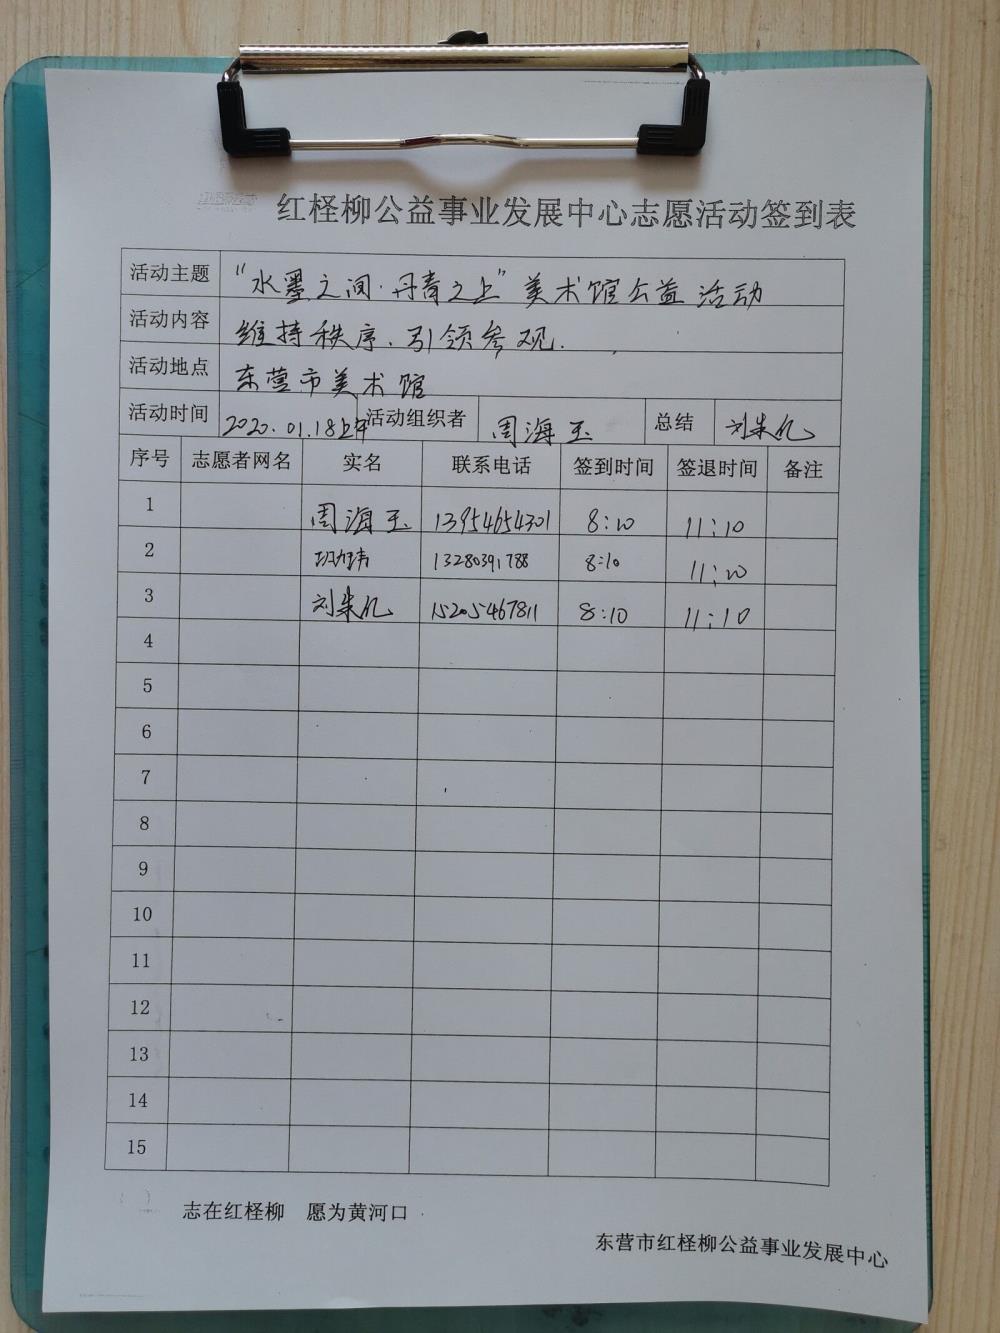 红柽柳公益事业发展中心志愿活动签到表
活动主题 “水墨之间·丹青之上”美术馆公益活动
活动内容 维持秩序、引领参观.
活动地点 东营市美术馆
活动时间 2020.01.18上午 活动组织者 周海玉 总结
序号 志愿者网名 实名 联系电话 签到时间 签退时间 备注
1 周海玉 13954654301 8:10 11:10
2 13280391788 8:10 11:10
3 15205467811 8:10 11:10
4
5
6
7
8
9
10
11
12
13
14
15
志在红柽柳 愿为黄河口
东营市红柽柳公益事业发展中心